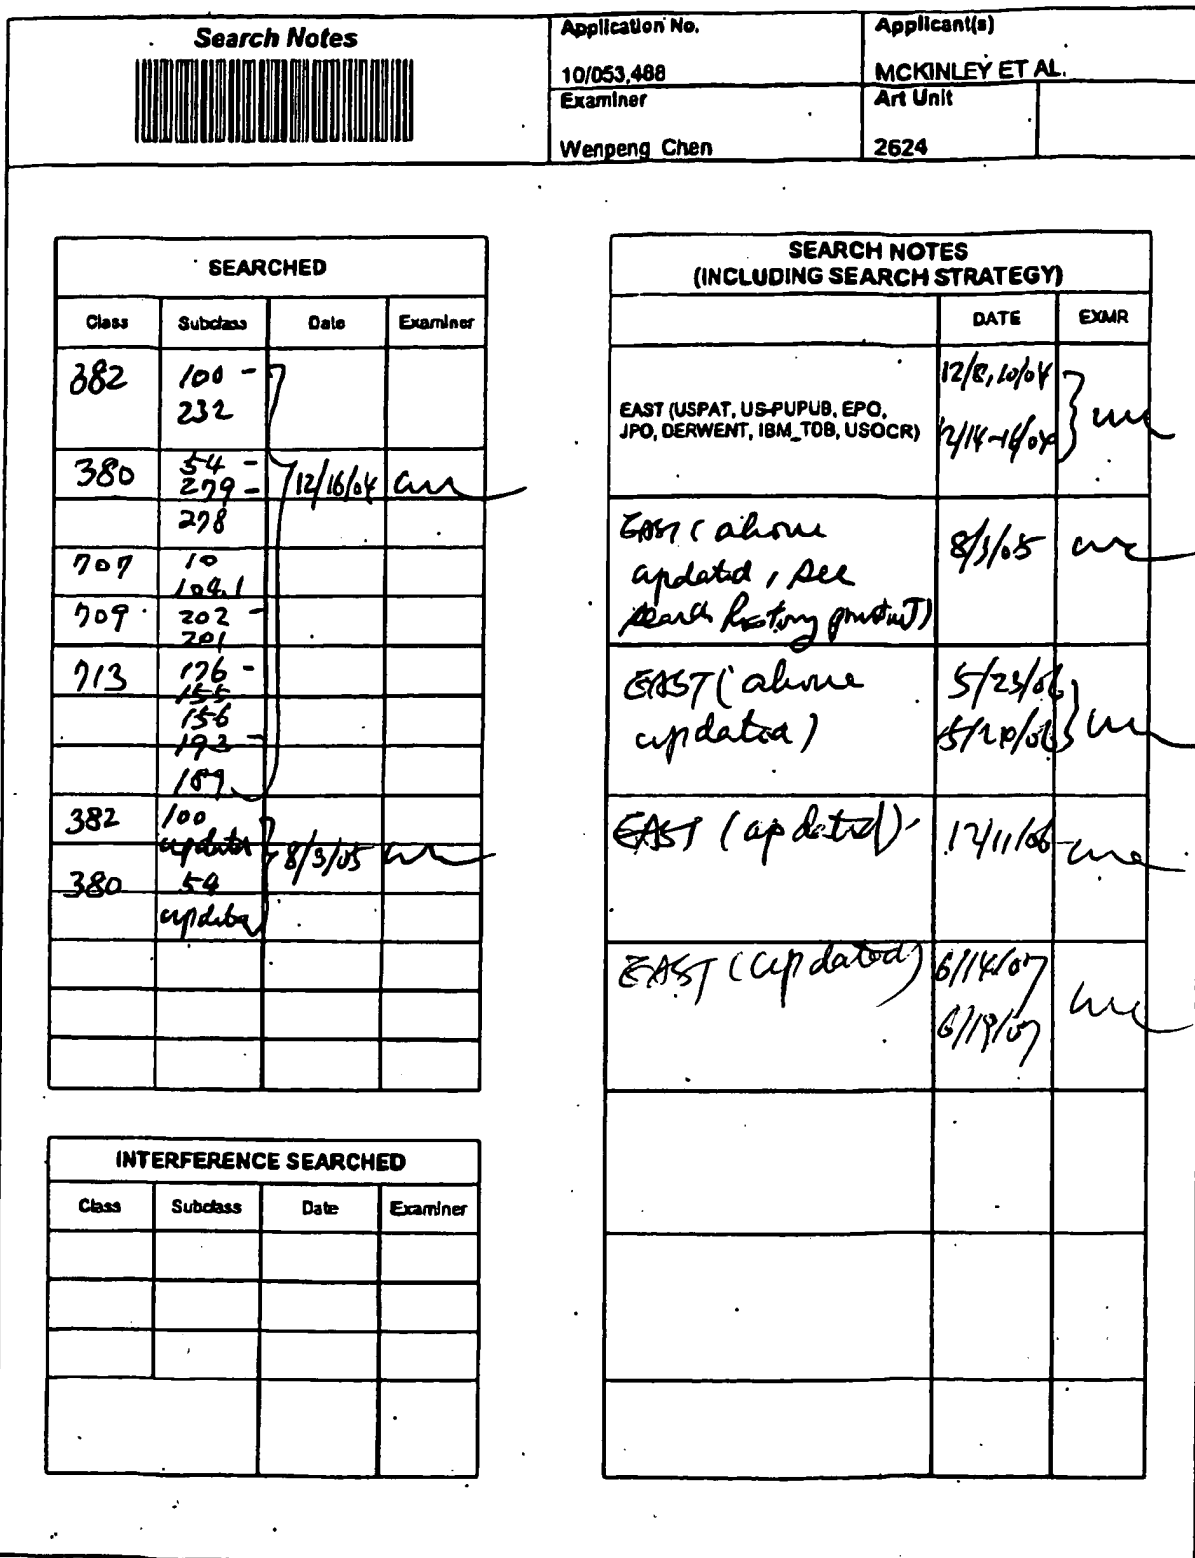 Search Notes
Application No.
Applicant(s)
10/053,488
MCKINLEY ET AL.
Examiner
Art Unit
Wenpeng Chen
2624
SEARCHED
Class Subclass Date Examiner
382 100 -
232
380 54 -
279 - 12/16/04
278
707 10
104.1
709 202 -
201
713 176 -
155
156
193 -
189
382 100
updated 8/3/05
380 54
updated
INTERFERENCE SEARCHED
Class Subclass Date Examiner
SEARCH NOTES
(INCLUDING SEARCH STRATEGY)
DATE EXMR
12/8,10/04
EAST (USPAT, US-PUPUB, EPO,
JPO, DERWENT, IBM_TDB, USOCR)
12/14-16/04
EAST (above
updated, see
search history printout)
8/3/05
EAST (above
updated)
5/23/06
EAST (updated)
12/11/06
EAST (updated)
6/14/07
6/19/07